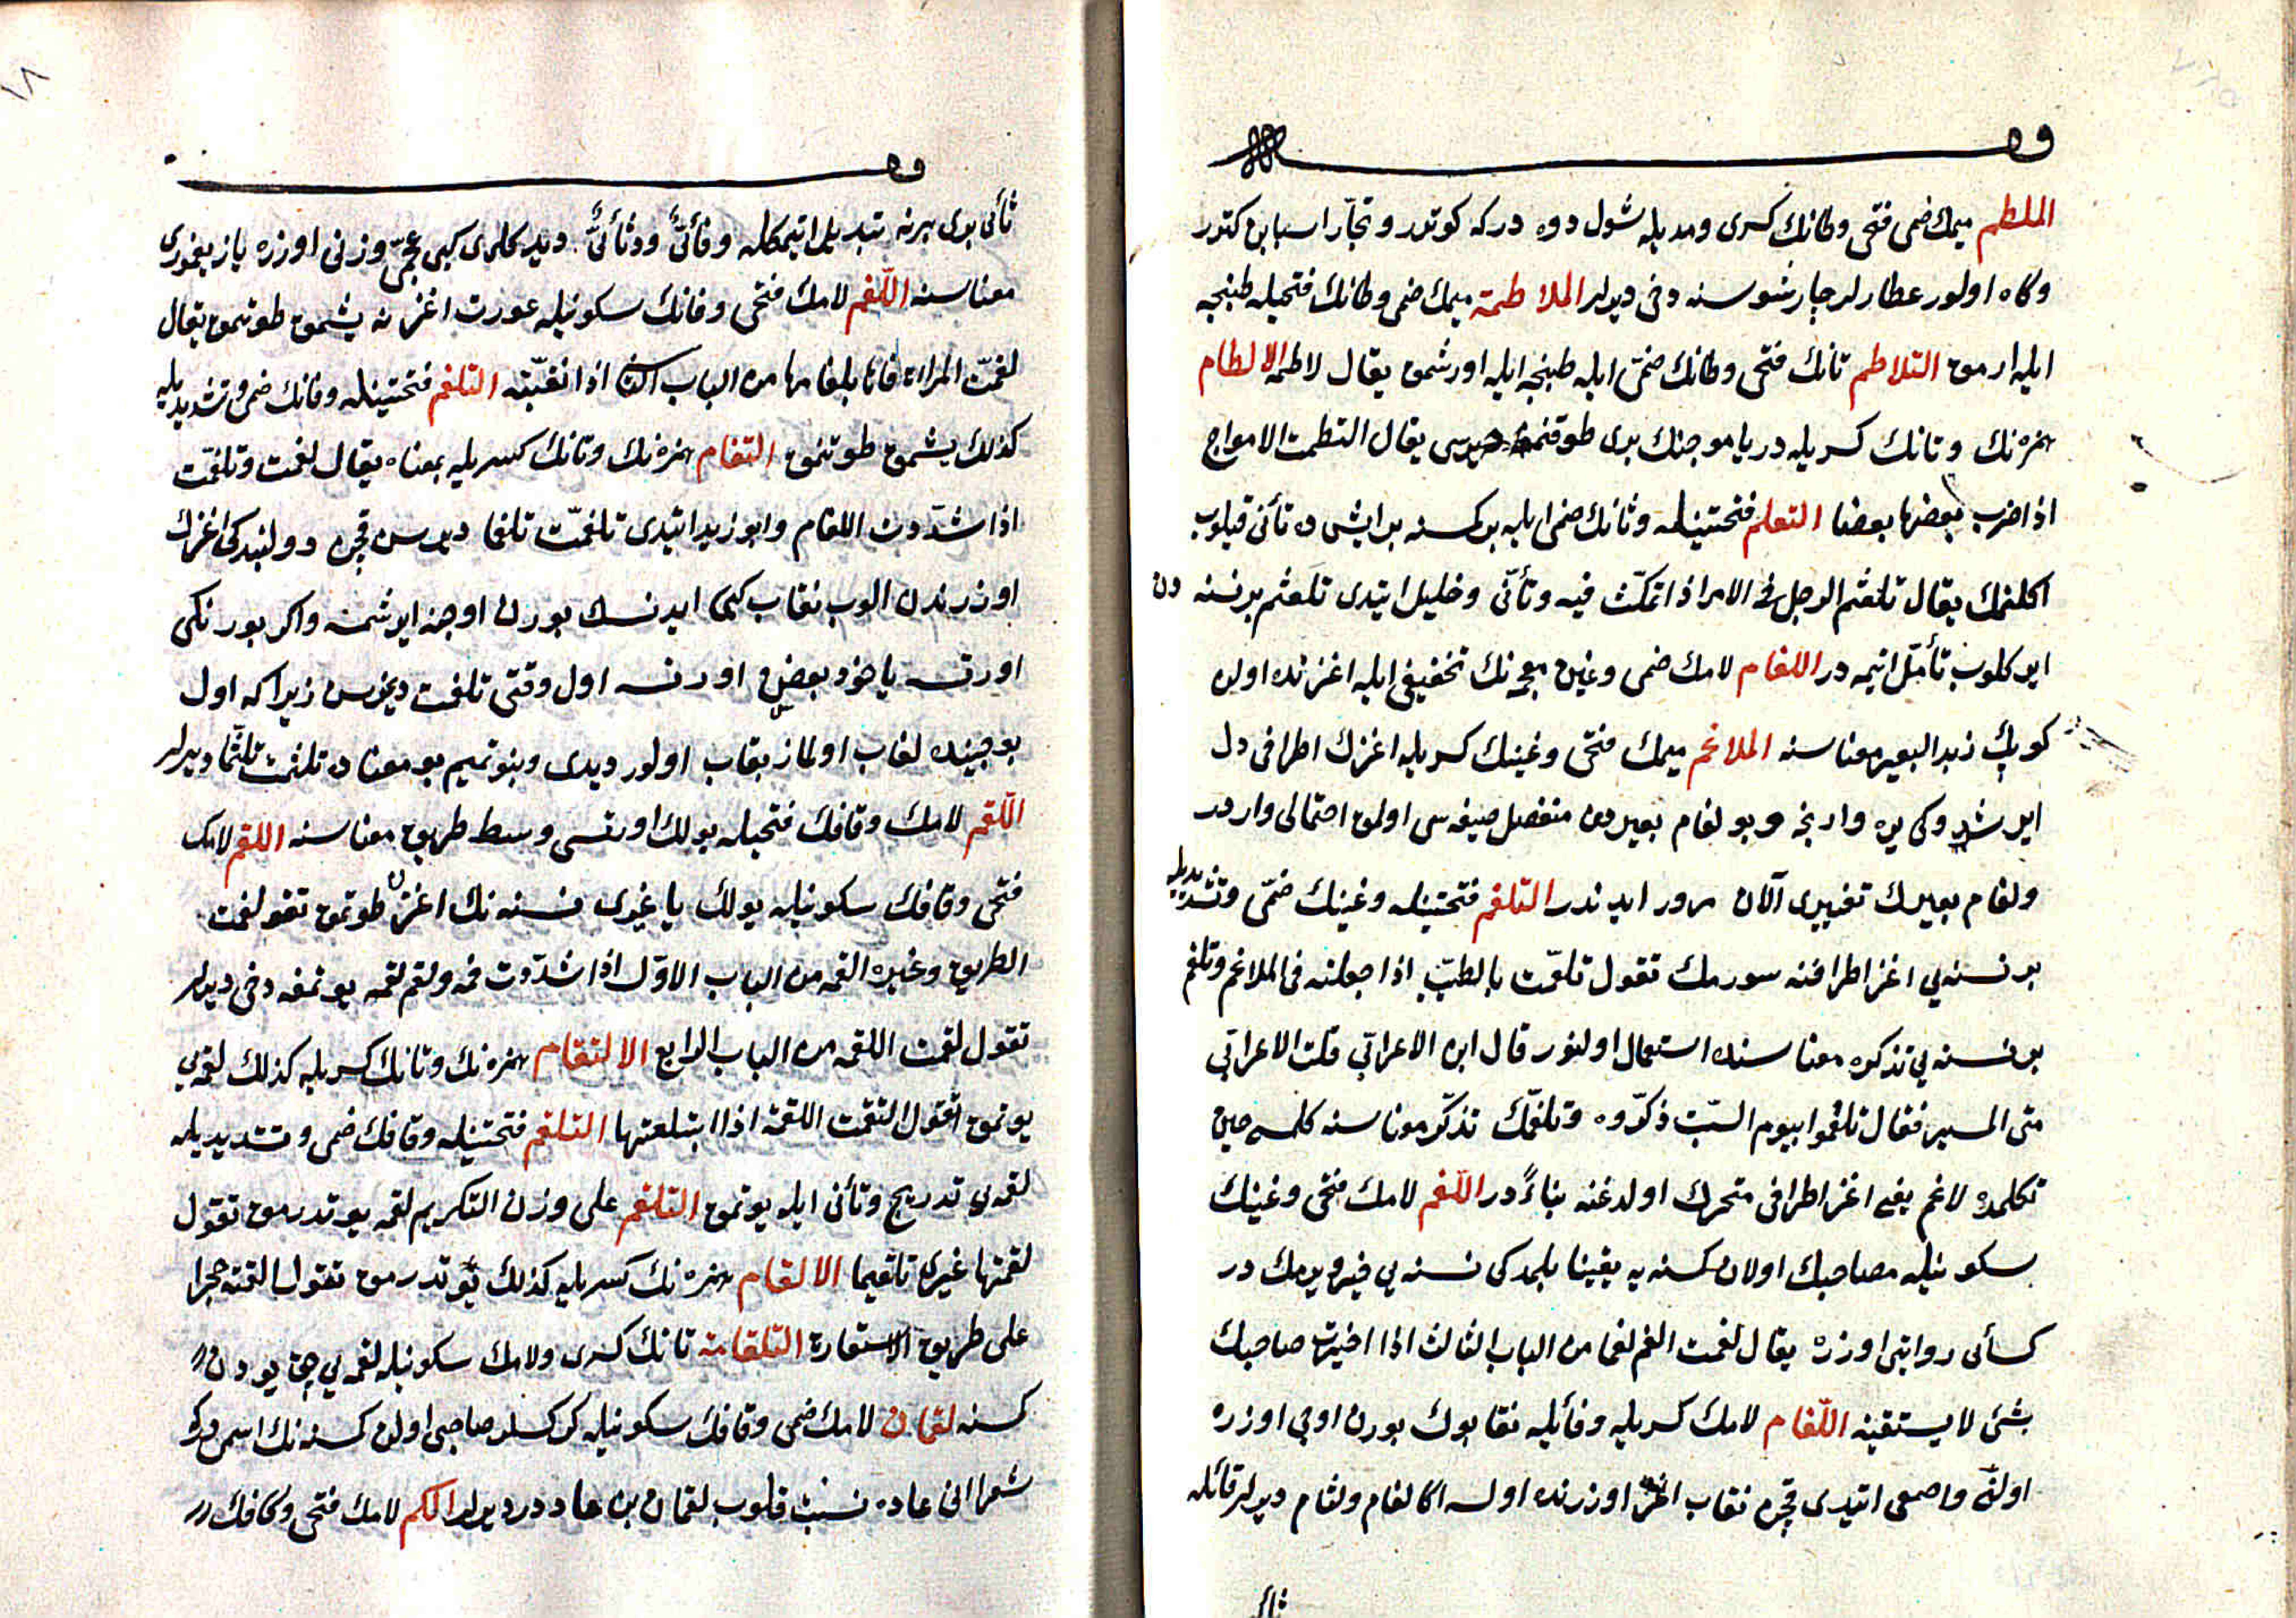 الملطم ميمك ضمى فتحى وطانك كسرى ومد يله شول دوه دركه كوتور و تجار اسبابن كتور
وكاه اولور عطارلر جارشوسنه دخى ديرلر الملاطمة ميمك ضمى وطانك فتحيله طبنجه
ايله ارمق التلاطم تانك فتحى وطانك ضمى ايله طبنجه ايله اورشمق يقال لاطمه الالطام
همزه نك وتانك كسريله دريا موجنك برى طوقنمق يقال التطمت الامواج
اذا ضرب بعضها بعضا التعلم فتحتينله وثانك ضمى ايله بر كسنه بر ايشى ده تأنى قيلوب
اكلنمك يقال تلعثم الرجل فى الامر اذا تمكث فيه وتأنى وخليل ايتدى تلعثم بر نسنه دن
ايو كلوب تأمل ايتمه در اللغام لامك ضمى وغين معجمه نك تخفيفى ايله اغزنده اولن
كوپك زبد البعير معناسنه الملاغم ميمك فتحى وغينك كسريله اغزك اطرافى دل
ايرشدوكى يره وارنجه وبو لغام بعيردن منفصل صيغه سى اولمق احتمالى واردر
ولغام بعيرك تفسيرى الآن مرور ايدندر التلغم فتحتينله وغينك ضمى وتشديديله
بر نسنه يى اغز اطرافنه سورمك تقول تلغمت بالطيب اذا جعلته فى الملاغم وتلغم
بر نسنه يى تذكره معناسنده استعمال اولنور قال ابن الاعرابى قلت لاعرابى
متى المسير فقال تلغموا بيوم السبت ذكروه وتلغمك تذكر معناسنه كلمسى حين
تكلمده لاغم يعنى اغز اطرافى متحرك اولدغنه بناءً در اللغم لامك فتحى وغينك
سكونيله مصاحبك اولان كسنه يه يقينا بلمدكى نسنه يى خبر ويرمك در
كسائى روايتى اوزره يقال لغمت الغم لغما من الباب الثالث اذا اخبرت صاحبك
بشئ لا يستقينه اللفام لامك كسريله وفأيله نقابك بورن اوجى اوزره
اولنى واصمعى ايتدى قچن نقاب اغز اوزرنده اولسه اكا لفام ولثام ديرلر فائله
ثائى
ثأنى برى برينه تبديل ايتمكله وفأئى ودثأئى ديدكلرى كبى عجمى وزنى اوزره ياز يغمورى
معناسنه اللفم لامك فتحى وفانك سكونيله عورت اغزنه يشمق طوتمق يقال
لفمت المرأة فاها بلفامها من الباب الثانى اذا نقبته التلفم فتحتينله وفانك ضمى وتشديديله
كذلك يشمق طوتنمق التفام همزه نك وتانك كسريله بمعناه يقال لفمت وتلفمت
اذا شددت اللفام وابو زيد ايتدى تلفمت تلفما ديرسن قچن دولبندكى اغزك
اوزرندن الوب نقاب كبى ايدنسك بورن اوجنه ايرشمسه واكر بورنكى
اورتسه ياخود بعضن اورتسه اول وقتى تلفمت ديمزسن زيرا كه اول
بو جينده لفاب اولماز بقاب اولور ديدى وبنو تميم بو معناده تلثمت تلثما ديرلر
اللقم لامك وقافك فتحيله يولك اورتسى وسط طريق معناسنه اللقم لامك
فتحى وقافك سكونيله يولك يا غيرى نسنه نك اغزن طوتمق تقول لقمت
الطريق وغيره القمه من الباب الاول اذا شددت فمه ولقم لقمه يوتمغه دخى ديرلر
تقول لقمت اللقمه من الباب الرابع الالتقام همزه نك وتانك كسريله كذلك لقمه يى
يوتمق تقول التقمت اللقمة اذا ابتلعتها التلقم فتحتينله وقافك ضمى وتشديديله
لقمه يى تدريج وتأنى ايله يوتمق التلقم على وزن التكريم لقمه يوتدرمق تقول
لقمتها غيرى تلقيما الالقام همزه نك كسريله كذلك يوتدرمق تقول القمته حجرا
على طريق الاستعارة التلقامة تانك كسرى ولامك سكونيله لقمه يى چق يودن
كسنه لقمان لامك ضمى وقافك سكونيله كركسلر صاحبى اولن كسنه نك اسمى دركه
شعرا انى عاده نسبت قلوب لقمان بن عاد درديرلر الكم لامك فتحى وكافك